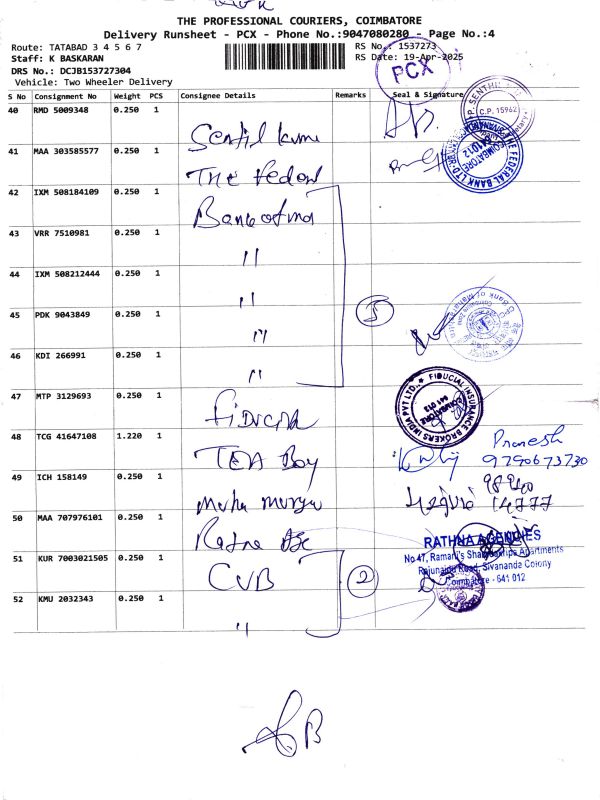 THE PROFESSIONAL COURIERS, COIMBATORE
Delivery Runsheet - PCX - Phone No.:9047080280 - Page No.:4
Route: TATABAD 3 4 5 6 7
RS No.: 1537273
Staff: K BASKARAN
RS Date: 19-Apr-2025
DRS No.: DCJB153727304
PCX
Vehicle: Two Wheeler Delivery
S No Consignment No Weight PCS Consignee Details Remarks Seal & Signature
40 RMD 5009348 0.250 1
C.P. 15962
41 MAA 303585577 0.250 1 The Fedral
THE FEDERAL BANK LTD
COIMBATORE
641012
42 IXM 508184109 0.250 1
43 VRR 7510981 0.250 1 "
44 IXM 508212444 0.250 1 "
45 PDK 9043849 0.250 1 "
5
46 KDI 266991 0.250 1 "
47 MTP 3129693 0.250 1
FIDUCIAL INSURANCE BROKERS INDIA PVT LTD.,
COIMBATORE
641 012
48 TCG 41647108 1.220 1 TEA Boy
Pranesh
9790673730
49 ICH 158149 0.250 1
98940
14777
50 MAA 707976101 0.250 1 Ratna
RATHNA AGENCIES
No 47, Ramani's Apartments
51 KUR 7003021505 0.250 1 CUB
2
Road, Sivananda Colony
Coimbatore - 641 012
52 KMU 2032343 0.250 1 "